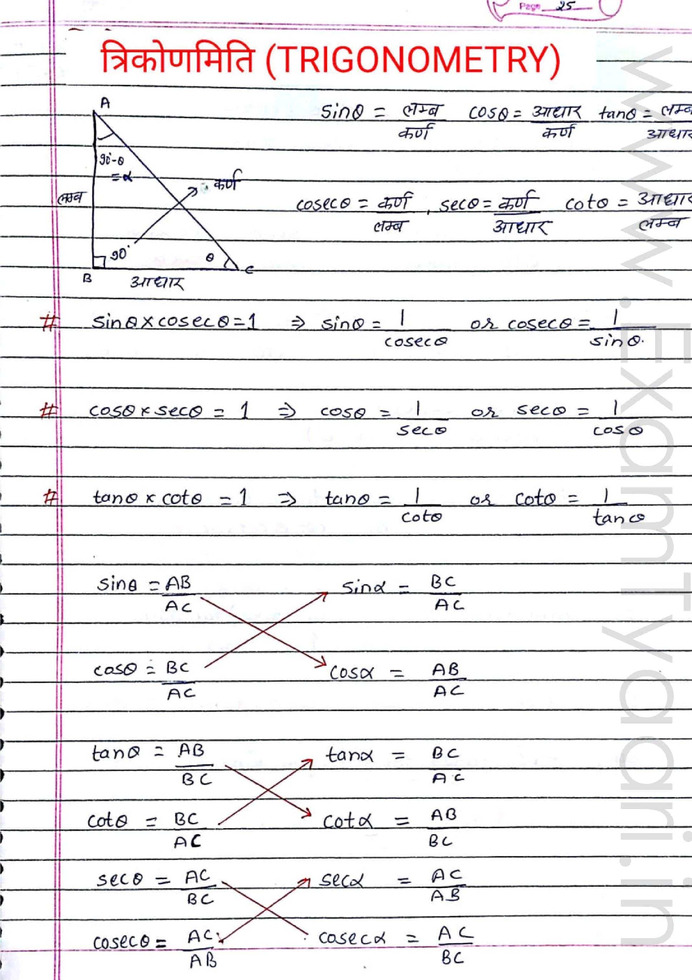 Page 25
त्रिकोणमिति (TRIGONOMETRY)
A
90°-θ
=α
लम्ब
कर्ण
90°
θ
B
C
आधार
sinθ = लम्ब/कर्ण cosθ = आधार/कर्ण tanθ = लम्ब/आधार
cosecθ = कर्ण/लम्ब , secθ = कर्ण/आधार cotθ = आधार/लम्ब
# sinθ×cosecθ=1 ⇒ sinθ = 1/cosecθ or cosecθ = 1/sinθ.
# cosθ×secθ = 1 ⇒ cosθ = 1/secθ or secθ = 1/cosθ
# tanθ×cotθ = 1 ⇒ tanθ = 1/cotθ or cotθ = 1/tanθ
sinθ = AB/AC sinα = BC/AC
cosθ = BC/AC cosα = AB/AC
tanθ = AB/BC tanα = BC/AC
cotθ = BC/AC cotα = AB/BC
secθ = AC/BC secα = AC/AB
cosecθ = AC/AB cosecα = AC/BC
www.ExamTyaari.in